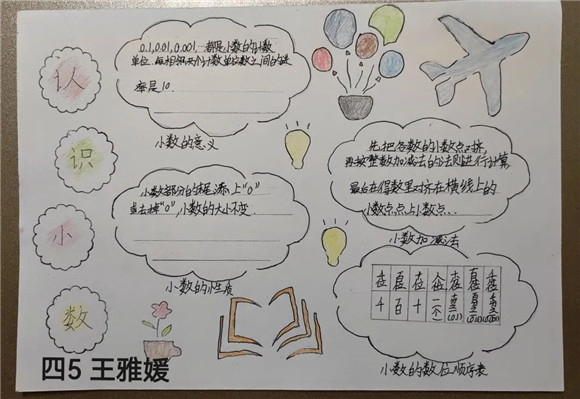 认
识
小
数
0.1,0.01,0.001,…都是小数的计数
单位.每相邻两个计数单位之间的进
率是10.
小数的意义
小数部分的末尾添上“0”
或去掉“0”,小数的大小不变.
小数的性质
先把各数的小数点对齐,
再按整数加减法的法则进行计算
最后在得数里对齐在横线上的
小数点,点上小数点..
小数加减法
千位 百位 十位 个位 十分位 百分位 千分位
千 百 十 一(个)
小数的数位顺序表
四5 王雅媛